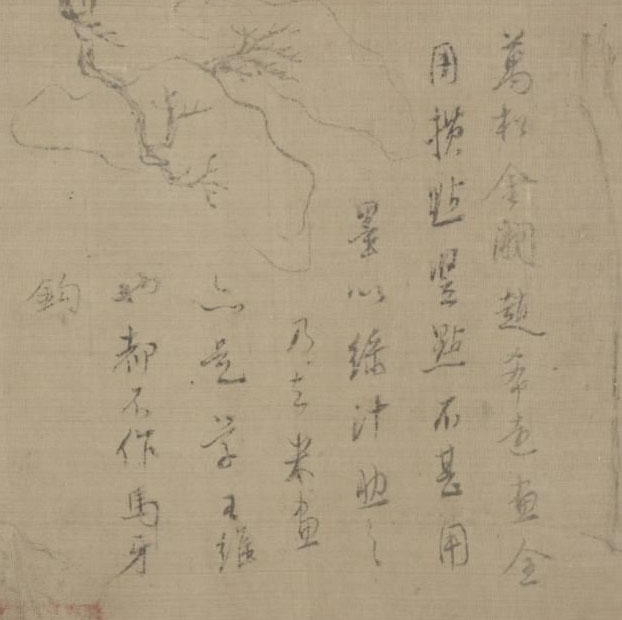 萬松金闕趙希遠畫全
用横點竪點不甚用
墨以綠汁助之
乃知米畫
亦是学王維
也都不作馬牙
鈎